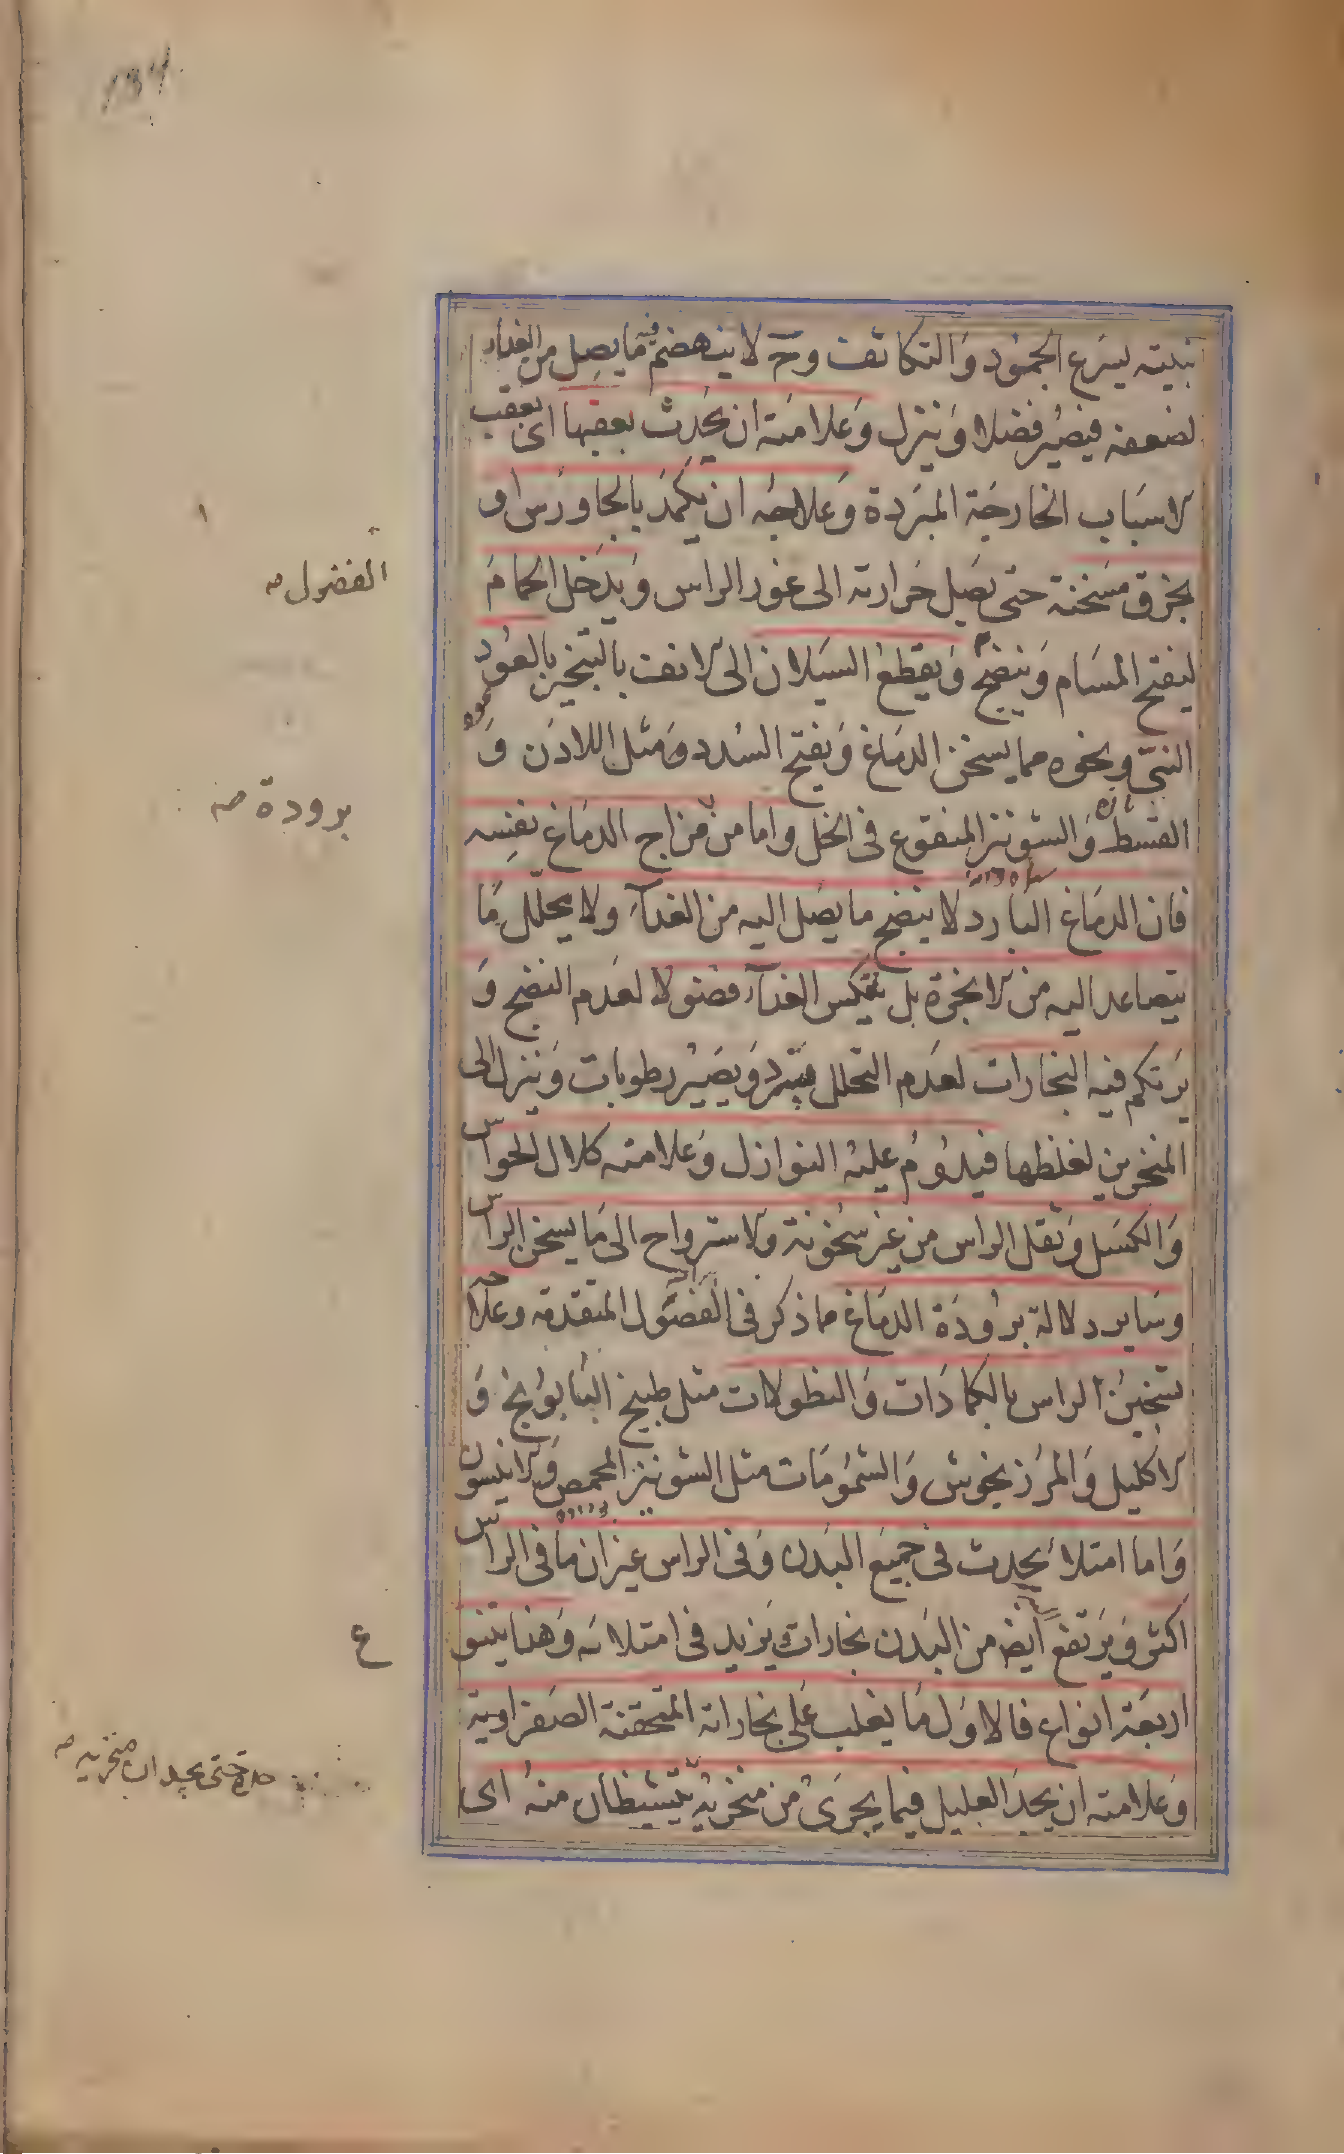 ١٣٤
يسرع الجمود والتكاثف وح لا ينهضم فيه ما يصل من الغذاء
لضعفه فيصير فضلا وينزل وعلامته ان يحدث بعقبها اى بعقب
الاسباب الخارجة المبردة وعلاجه ان يكمد بالجاورس او
بخرق مسخنة حتى تصل حرارته الى غور الراس ويدخل الحمام
ليفتح المسام وينضج ويقطع السيلان الى الانف بالتبخير بالعود
النى ونحوه مما يسخن الدماغ ويفتح السدد ومثل اللادن و
القسط والشونيز المنقوع فى الخل واما من مزاج الدماغ نفسه
فان الدماغ البارد لا ينضج ما يصل اليه من الغذاء ولا يحلل ما
يتصاعد اليه من الابخرة بل الغذاء فضولا لعدم النضج و
يرتكم فيه البخارات لعدم التحلل فيبرد ويصير رطوبات وينزل الى
المنخرين لغلظها فيدوم عليه النوازل وعلامته كلال الحواس
والكسل وثقل الراس من غير سخونة والاسترواح الى ما يسخن الراس
وساير دلالة برودة الدماغ مما ذكر فى الفصول المتقدمة وعلاجه
تسخين الراس بالكمادات والنطولات مثل طبيخ البابونج و
الاكليل والمرزنجوش والشمومات مثل الشونيز المحمص والانيسون
واما امتلاء يحدث فى جميع البدن وفى الراس غير ان ما فى الراس
اكثر ويرتفع ايض من البدن بخارات يزيد فى امتلائه وهذا يتنوع
اربعة انواع فالاول ما يغلب على بخاراته المتحقنة الصفراوية
وعلامته ان يجد العليل فيما يجرى من منخريه يتشيظان منه اى
الفضول صه
برودة صه
ع